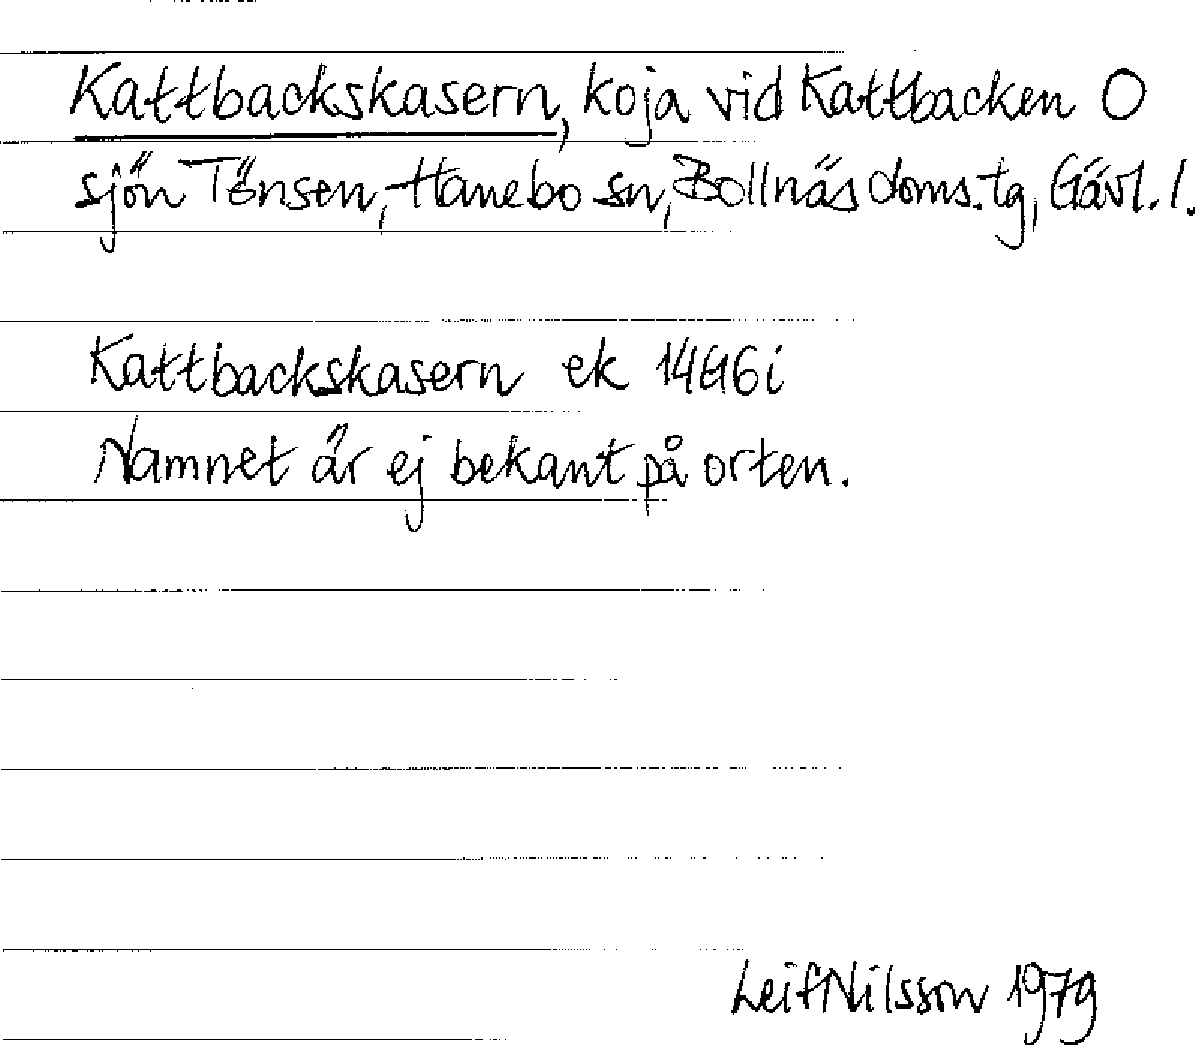 Kattbackskasern, koja vid Kattbacken O
sjön Tönsen, Hanebo sn, Bollnäs doms.tg, Gävl. l.
Kattbackskasern ek 14G6i
Namnet är ej bekant på orten.
Leif Nilsson 1979